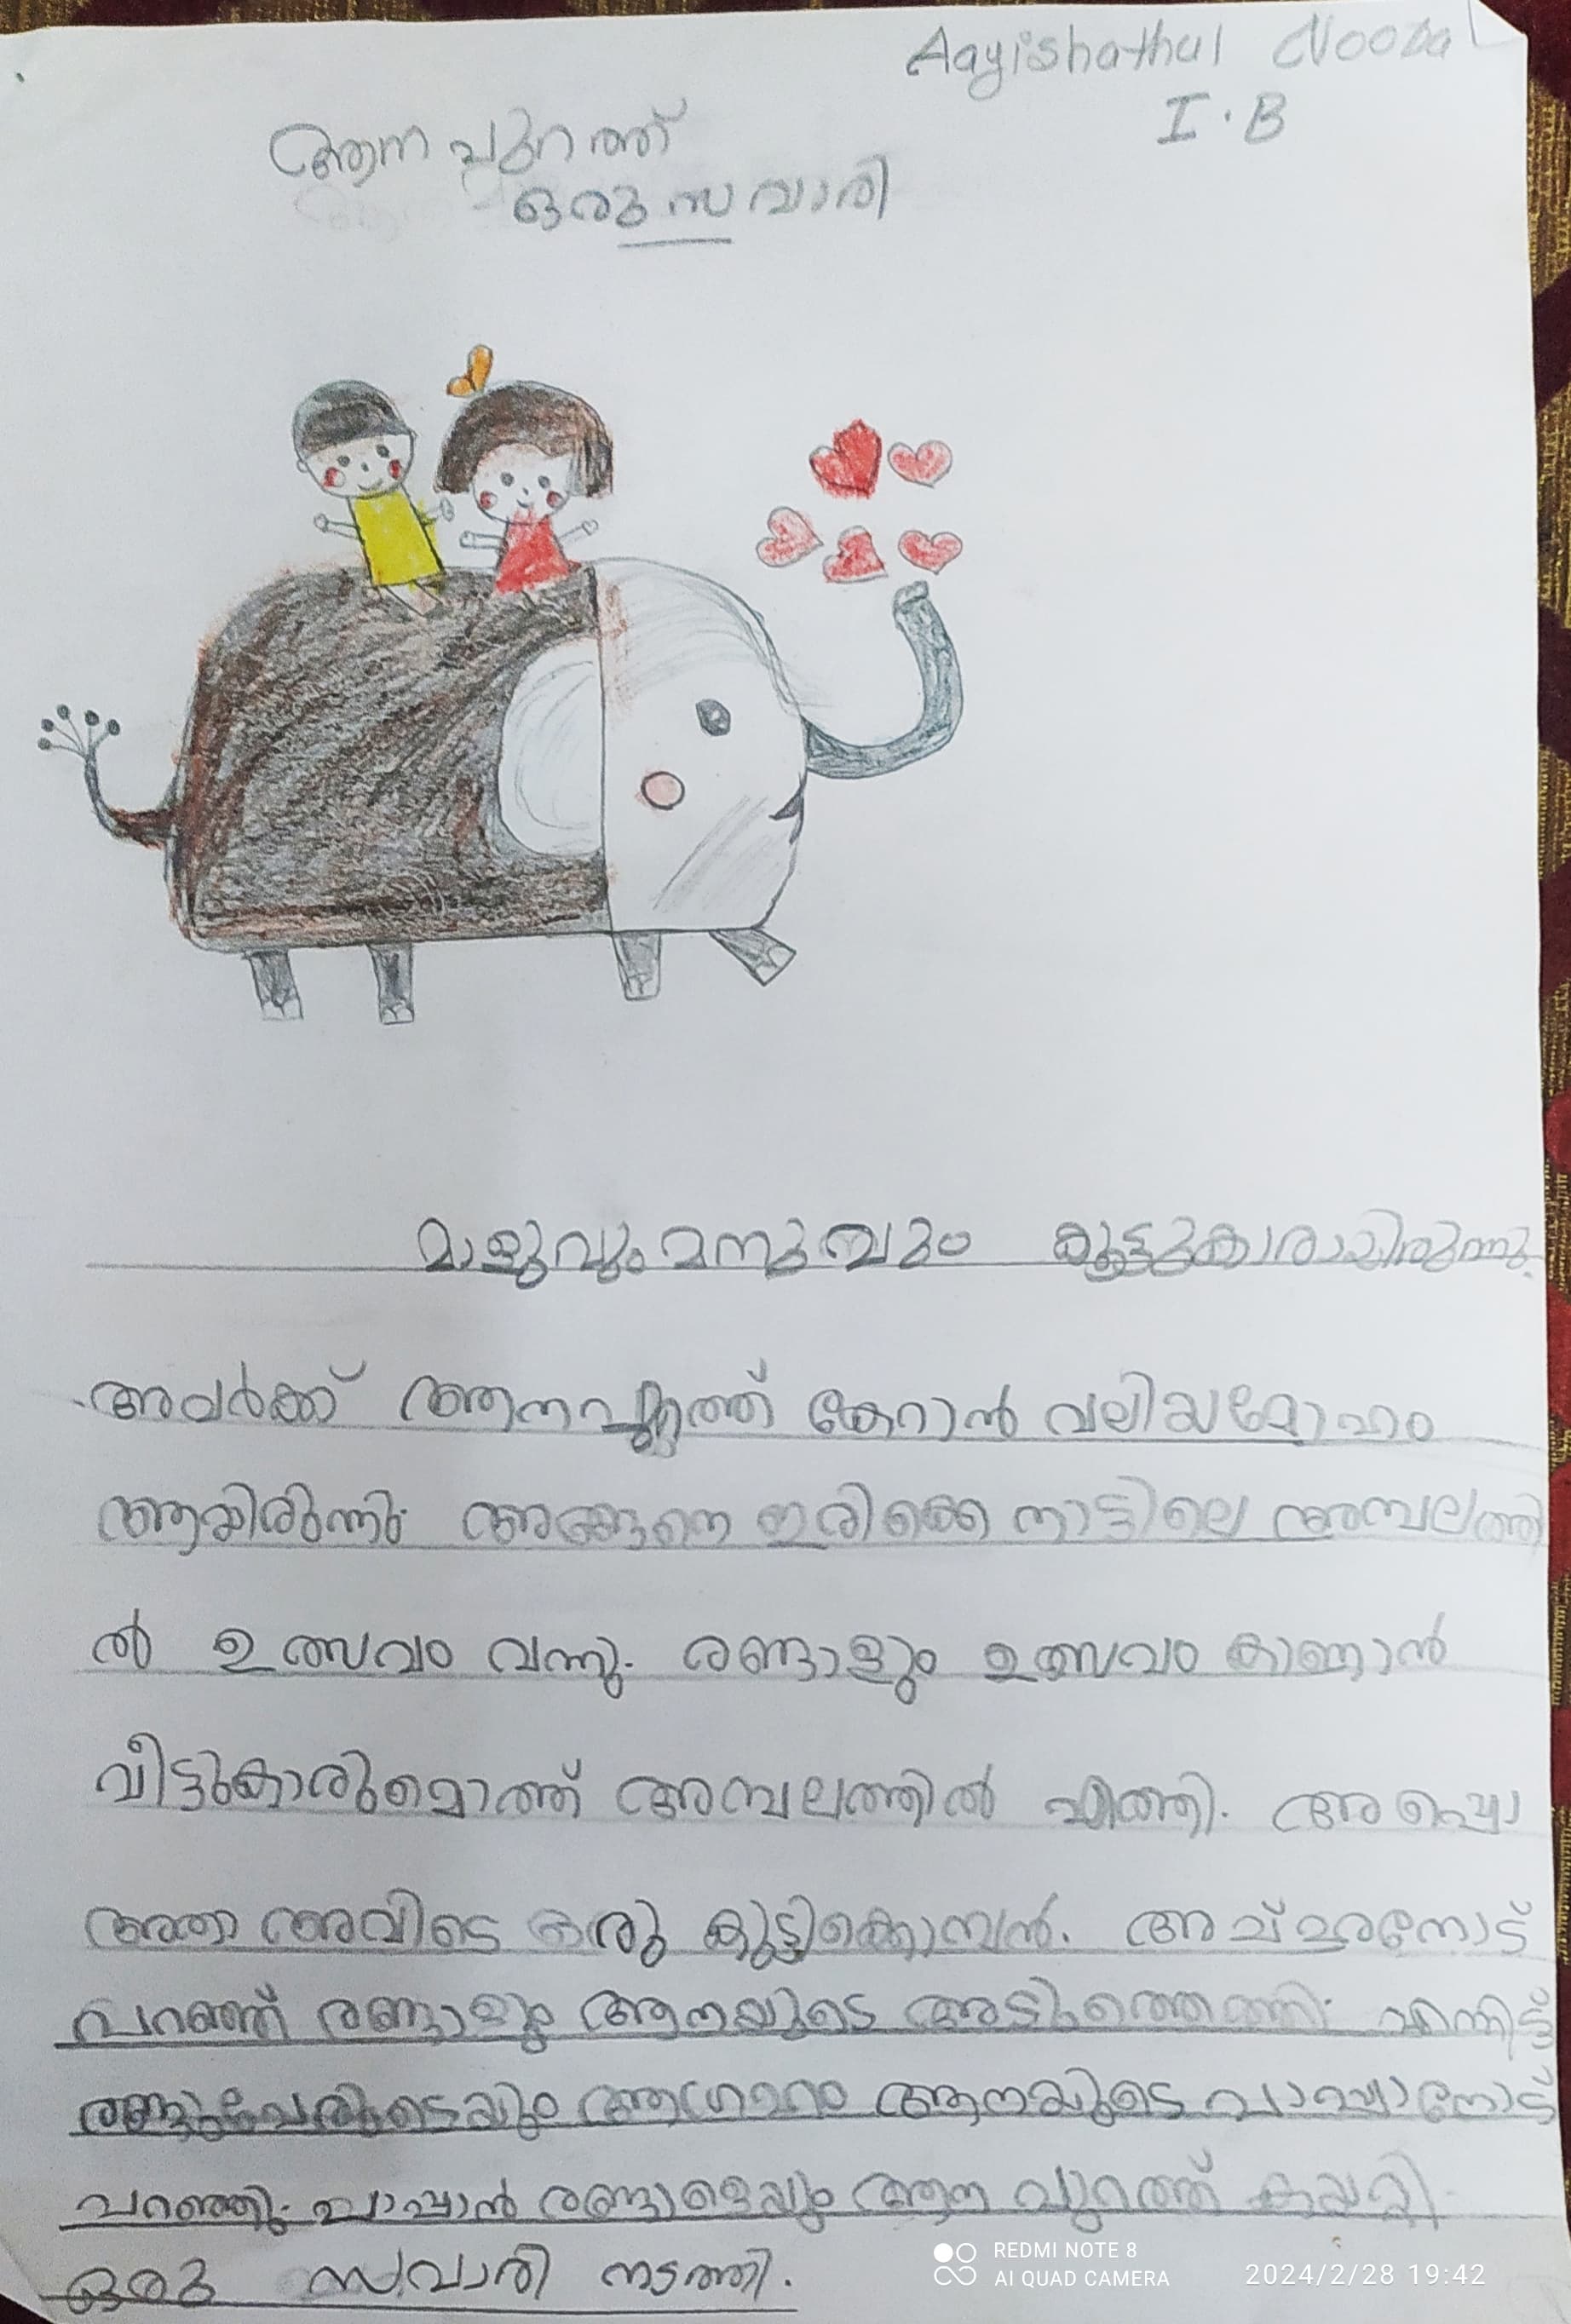 Aayishathul Nooba
I.B
ആന പുറത്ത്
ഒരു സവാരി
മാളുവും മനുവും കൂട്ടുകാരായിരുന്നു.
അവർക്ക് ആനപുറത്ത് കേറാൻ വലിയമോഹം
ആയിരുന്നു. അങ്ങനെ ഇരിക്കെ നാട്ടിലെ അമ്പലത്തി
ൽ ഉത്സവം വന്നു. രണ്ടാളും ഉത്സവം കാണാൻ
വീട്ടുകാരുമൊത്ത് അമ്പലത്തിൽ എത്തി. അപ്പൊ
അതാ അവിടെ ഒരു കുട്ടിക്കൊമ്പൻ. അച്ഛനോട്
പറഞ്ഞ് രണ്ടാളും ആനയുടെ അടുത്തെത്തി. എന്നിട്ട്
രണ്ടുപേരുടെയും ആഗ്രഹം ആനയുടെ പാപ്പാനോട്
പറഞ്ഞു. പാപ്പാൻ രണ്ടാളെയും ആന പുറത്ത് കയറ്റി
ഒരു സവാരി നടത്തി.
REDMI NOTE 8
AI QUAD CAMERA
2024/2/28 19:42